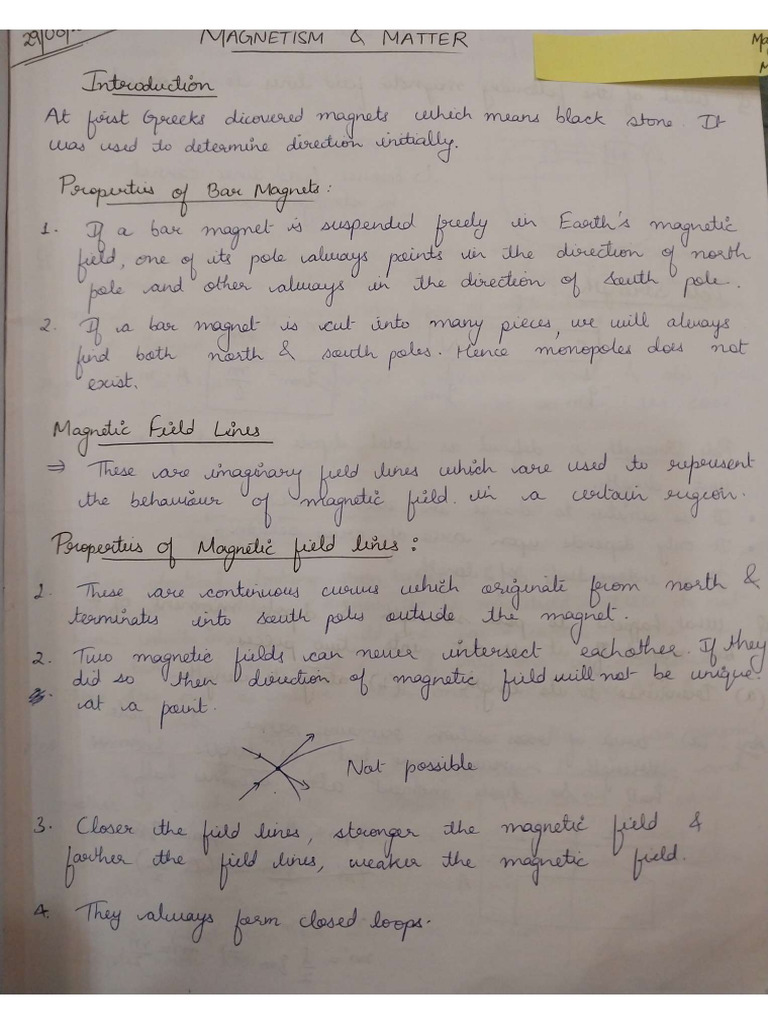 29/06/
MAGNETISM & MATTER
Ma
M
Introduction
At first Greeks dicovered magnets which means black stone. It
was used to determine direction initially.
Properties of Bar Magnets:
1. If a bar magnet is suspended freely in Earth's magnetic
field, one of its pole always points in the direction of north
pole and other always in the direction of south pole.
2. If a bar magnet is cut into many pieces, we will always
find both north & south poles. Hence monopoles does not
exist.
Magnetic Field Lines
⇒ These are imaginary field lines which are used to represent
the behaviour of magnetic field. in a certain rigeon.
Properties of Magnetic field lines:
1. These are continuous curves which originate from north &
terminates into south poles outside the magnet.
2. Two magnetic fields can never intersect eachother. If they
did so then direction of magnetic field will not be unique.
at a point.
Not possible
3. Closer the field lines, stronger the magnetic field &
farther the field lines, weaker the magnetic field.
4. They always form closed loops.